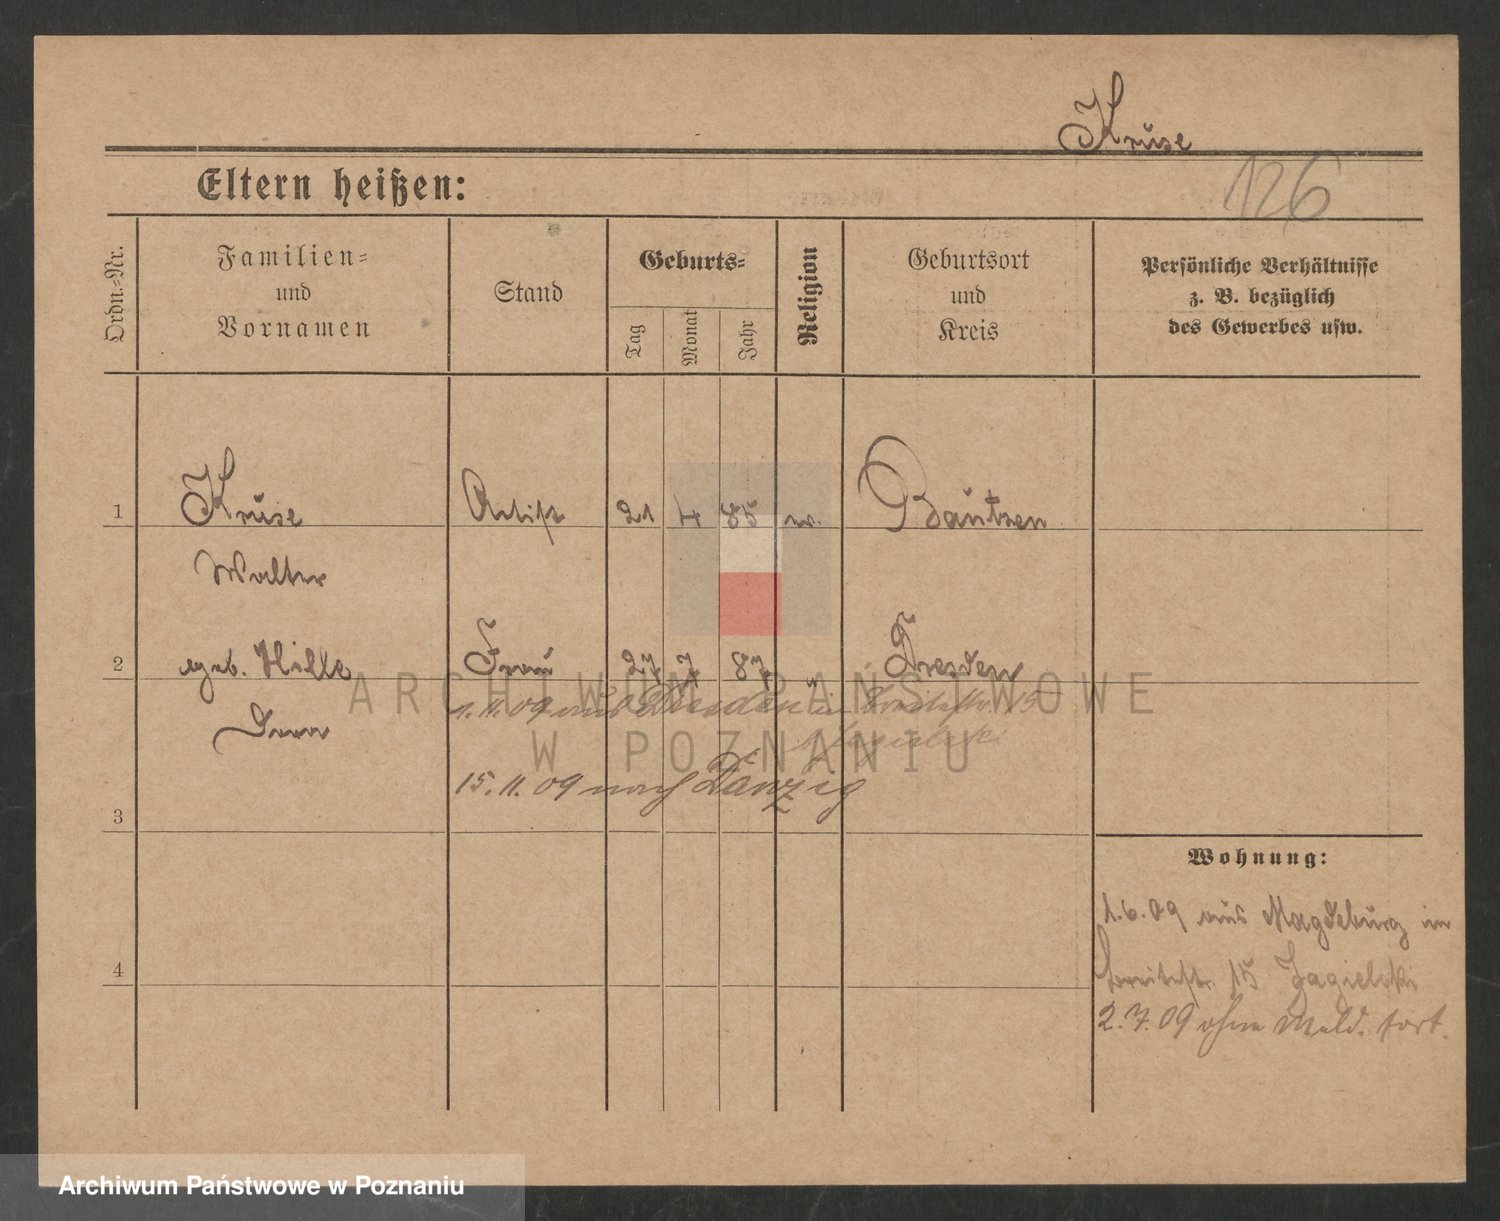 Kruse
126
Eltern heißen:
Ordn.-Nr.
Familien-
und
Vornamen
Stand
Geburts-
Tag
Monat
Jahr
Religion
Geburtsort
und
Kreis
Persönliche Verhältnisse
z. B. bezüglich
des Gewerbes usw.
1 Kruse Artist 21 4 85 Bautzen
Walter
2 geb. Hille Frau 27 7 87 " Dresden
1.11.09 aus Dresden in Breitestr. 15
Jagielski
15.11.09 nach Danzig
3
4
Wohnung:
1.6.09 aus Magdeburg in
Breitestr. 15 Jagielski
2.7.09 ohne Meld. fort.
ARCHIWUM PAŃSTWOWE
W POZNANIU
Archiwum Państwowe w Poznaniu